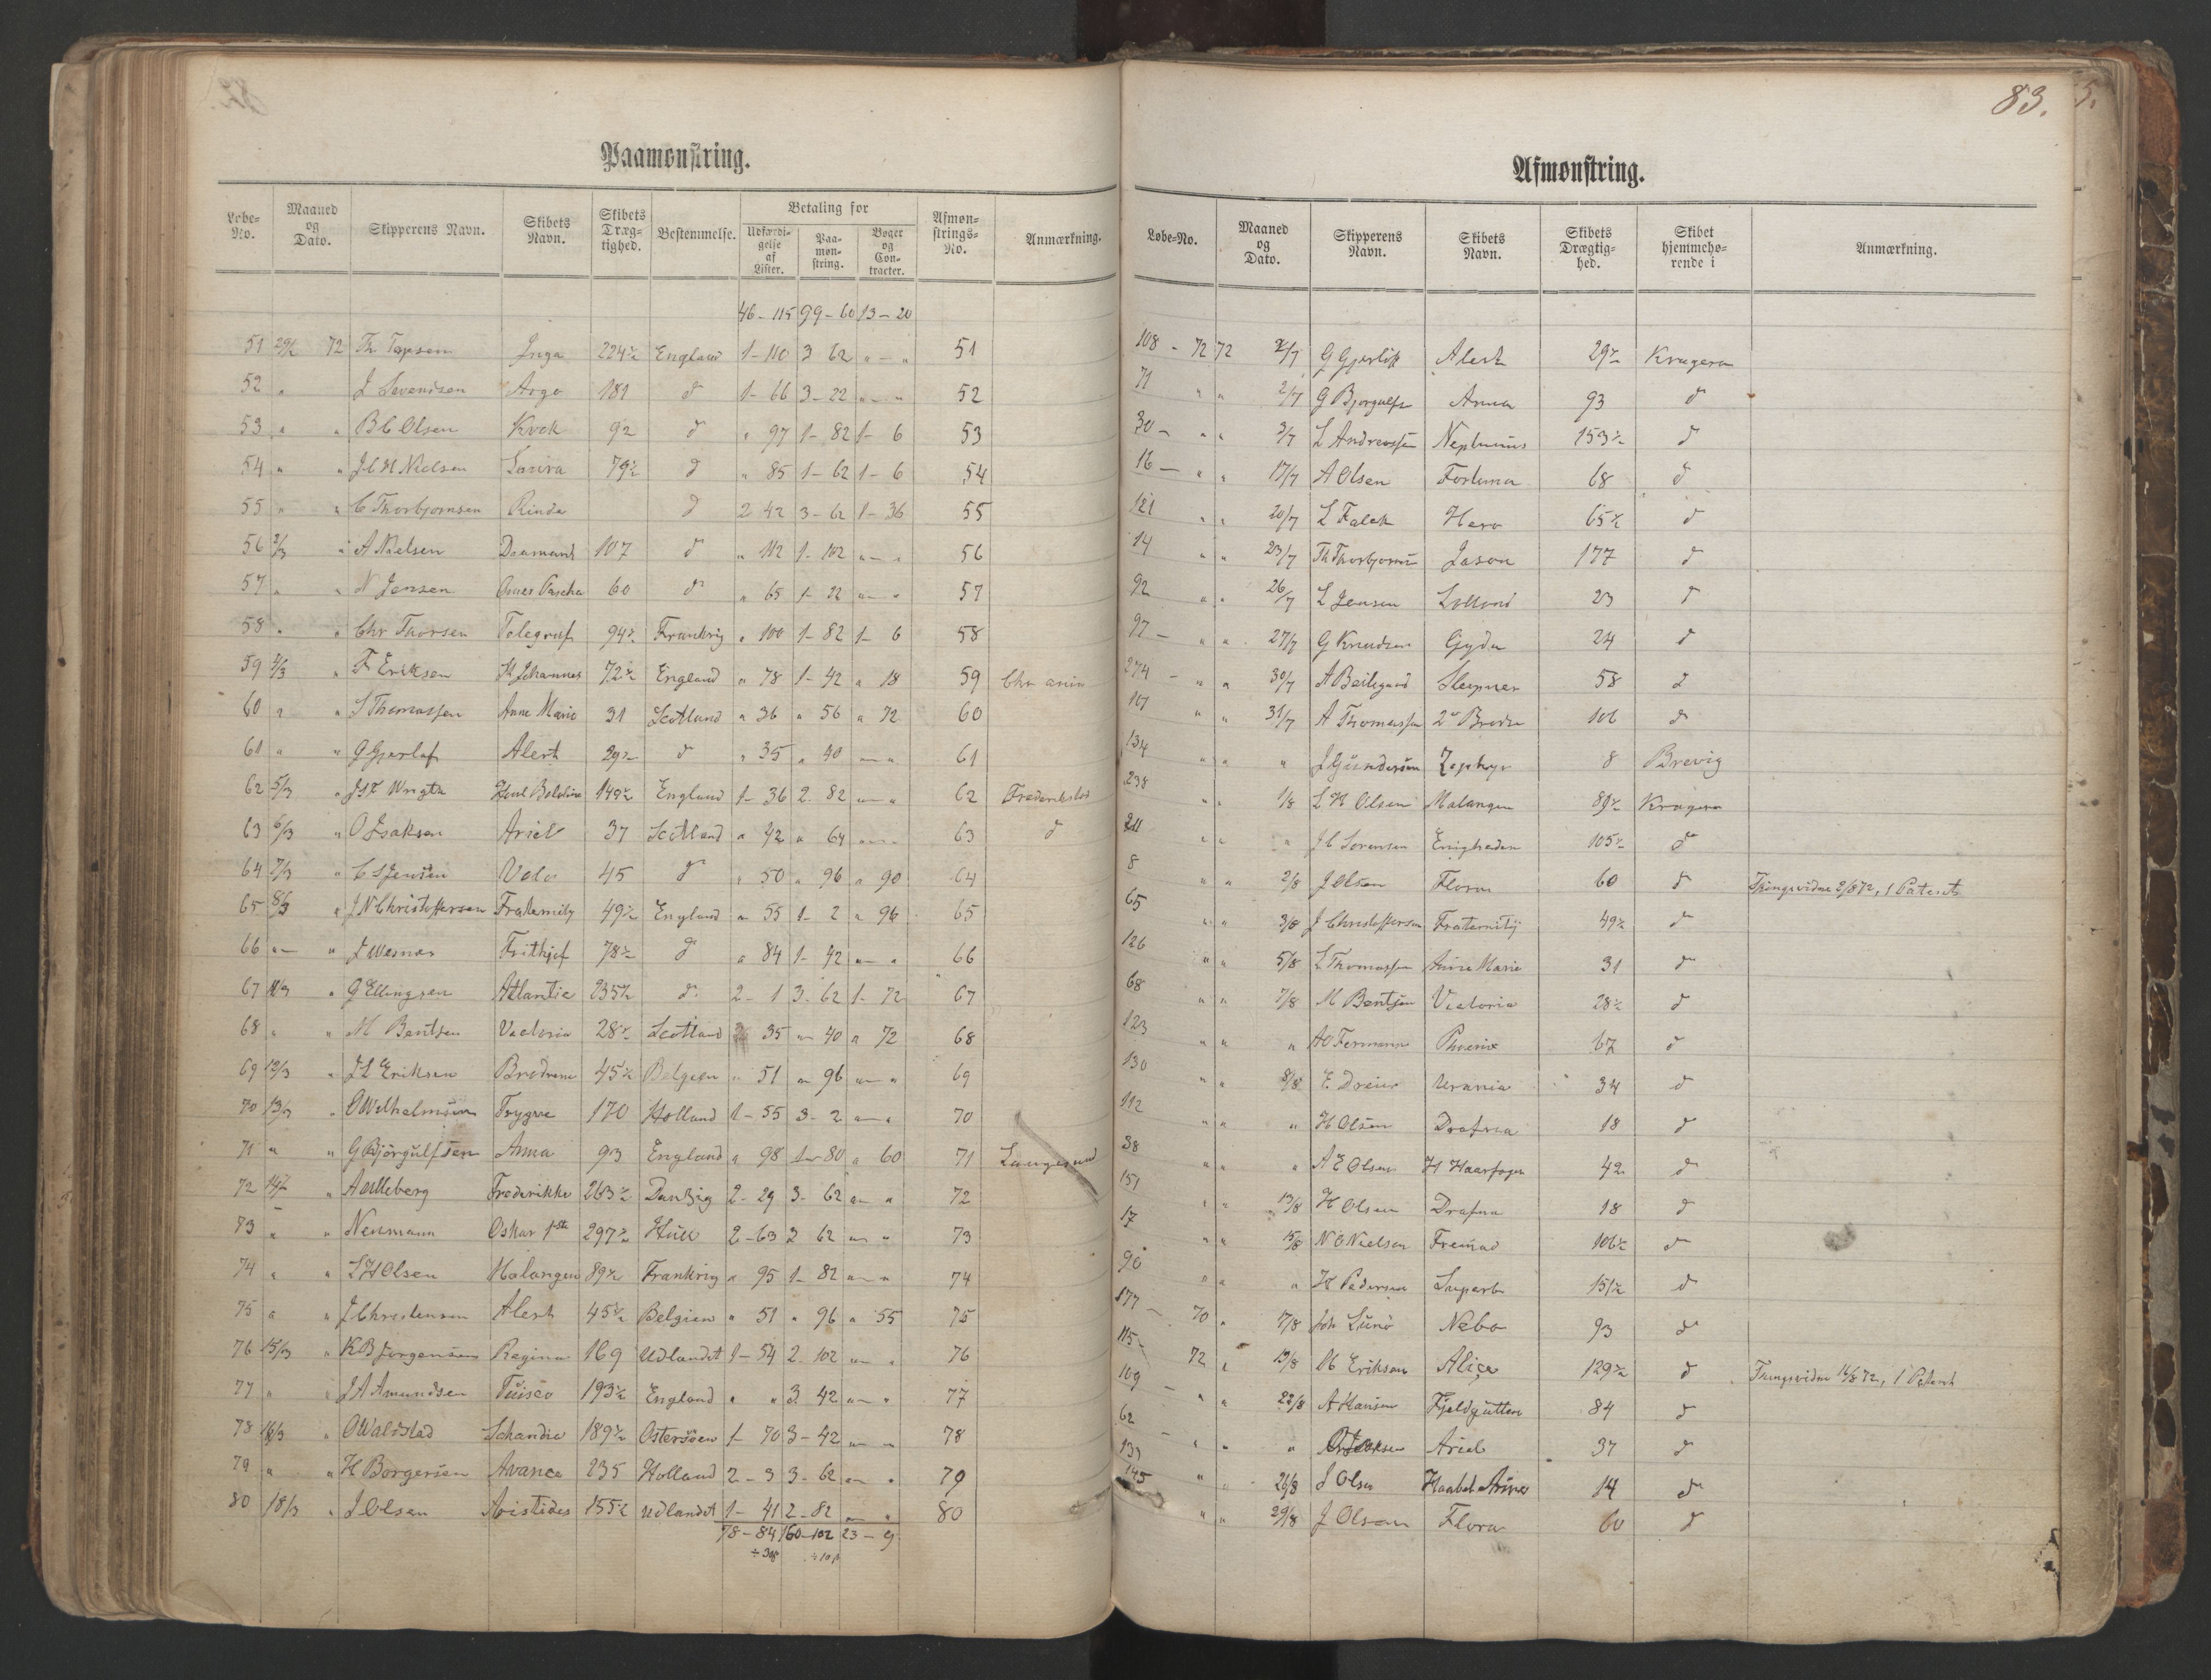 83.
Paamønstring.
Løbe-No. Maaned og Dato. Skipperens Navn. Skibets Navn. Skibets Dræg-tighed. Bestemmelse. Betaling for Udfærdi-gelse af Lister. Paa-møn-string. Bøger og Con-tracter. Afmøn-strings-No. Anmærkning.
46-115 99-60 13-20
51 29/2 72 Th Topsen Inga 224½ England 1-110 3 62 „-„ 51
52 „ J Sevendsen Argo 181 d 1-66 3-22 „-„ 52
53 „ „ B C Olsen Kvik 92 d „ 97 1-82 1-6 53
54 „ „ J C H Nielsen Lavira 79½ d „ 85 1-62 1-6 54
55 „ „ C Thorbjornsen Rinda d 2 42 3-62 1-36 55
56 2/3 „ A Nielsen Diamant 107 d „ 112 1-102 „-„ 56
57 „ „ N Jensen Omer Pascha 60 d „ 65 1-22 „-„ 57
58 „ „ Chr Thorsen Telegraf 94½ Frankrig „ 100 1-82 1-6 58
59 4/3 „ F Eriksen St Johannes 72½ England „ 78 1-42 „ 18 59
60 „ „ S Thomassen Anne Marie 31 Scotland „ 36 „ 56 „ 72 60
61 „ „ G Gjerløf Alert 29½ d „ 35 „ 40 „-„ 61
62 5/3 „ 149½ England 1-36 2-82 „-„ 62 Frederikstad
63 6/3 „ O Isaksen Ariel 37 Scotland „ 42 „ 64 „-„ 63 d
64 7/3 „ C S Jensen Valo 45 d „ 50 „ 96 „ 90 64
65 8/3 „ J N Christoffersen Fraternity 49½ England „ 55 1-2 „ 96 65
66 „- „ J Wesnes Frithjof 78½ d „ 84 1-42 „-„ 66
67 11/3 „ G Ellingsen Atlantic 235½ d 2-1 3-62 1-72 67
68 „ „ M Bentsen Victoria 28½ Scotland 35 „ 40 „ 72 68
69 12/3 „ J L Eriksen Brødrene 45½ Belgien „ 51 „ 96 „-„ 69
70 13/3 „ O Wilhelmsen Trygve 170 Holland 1-55 3-2 „-„ 70
71 „ „ G Bjørgulfsen Anna 93 England „ 98 1-80 „ 60 71 Langesund
72 14/3 „ Frederikke 263½ Dantzig 2-29 3-62 „-„ 72
73 „ „ Neumann Oskar 1ste 297½ Hull 2-63 3 62 „-„ 73
74 „ „ L H Olsen Malangen 89½ Frankrig „ 95 1-82 „-„ 74
75 „ „ J Christensen Alert 45½ Belgien „ 51 „ 96 „ 55 75
76 15/3 „ K B Jorgensen Regina 169 Udlandet 1-54 2-102 „-„ 76
77 „ „ J A Amundsen Tuisco 193½ England „ „ 3-42 „-„ 77
78 16/3 „ O Waldstad 189½ Østersøen 1-70 3-42 „-„ 78
79 „ „ H Borgersen Avance 235 Holland 2-3 3-62 „-„ 79
80 18/3 „ J Olsen Aristides 155½ Udlandet 1-41 2-82 „-„ 80
78-84 160-102 23-9
Afmønstring.
Løbe-No. Maaned og Dato. Skipperens Navn. Skibets Navn. Skibets Drægtig-hed. Skibet hjemmehø-rende i Anmærkning.
108-72 72 2/7 G Gjerløf Alert 29½ Kragerø
71 „ „ 2/7 G Bjorgulfs Anna 93 d
30- „ „ 3/7 L Andreassen Neptunus 153½ d
16- „ „ 17/7 A Olsen Fortuna 68 d
121 „ „ 20/7 L Falck Hero 65½ d
14 „ „ 23/7 Th Thorbjornsen Jason 177 d
92 „ „ 26/7 L Jensen Lolland 23 d
97- „ „ 27/7 G Knudsen Gyda 24 d
274- „ „ 30/7 A Beilegaard Sleipner 58 d
107 „ „ 31/7 A Thomassen 2de Brødre 106 d
134 „ „ „ J Gundersen Zephyr 8 Brevig
238 „ „ 1/8 L H Olsen Malangen 89½ Kragerø
211 „ „ „ J C Sorensen Enigheden 105½ d
8 „ „ 2/8 J Olsen Flora 60 d Thingsvidne 2/8 72, 1 Patent
65 „ „ 3/8 J Christoffersen Fraternity 49½ d
126 „ „ 5/8 L Thomassen Anne Marie 31 d
68 „ „ 7/8 M Bentsen Victoria 28½ d
123 „ „ „ A O Fermann Phoenix 67 d
130 „ „ 8/8 E Dreier Urania 34 d
112 „ „ „ H Olsen Drafna 18 d
38 „ „ „ A E Olsen H Haarfager 42 d
151 „ „ 13/8 H Olsen Drafna 18 d
17 „ „ 15/8 N O Nielsen Fremad 106½ d
90 „ „ „ H Pedersen Superb 151½ d
177-70 „ 17/8 Joh Lunø Nebo 93 d
115-72 „ 19/8 Ob Eriksen Alice 129½ d Thingsvidne 16/8 72, 1 Patent
109- „ „ 22/8 A Hansen Fjeldgutten 84 d
62- „ „ „ O Isaksen Ariel 37 d
133 „ „ 26/8 J Olsen Haabet Anna 14 d
145 „ „ 29/8 J Olsen Flora 60 d